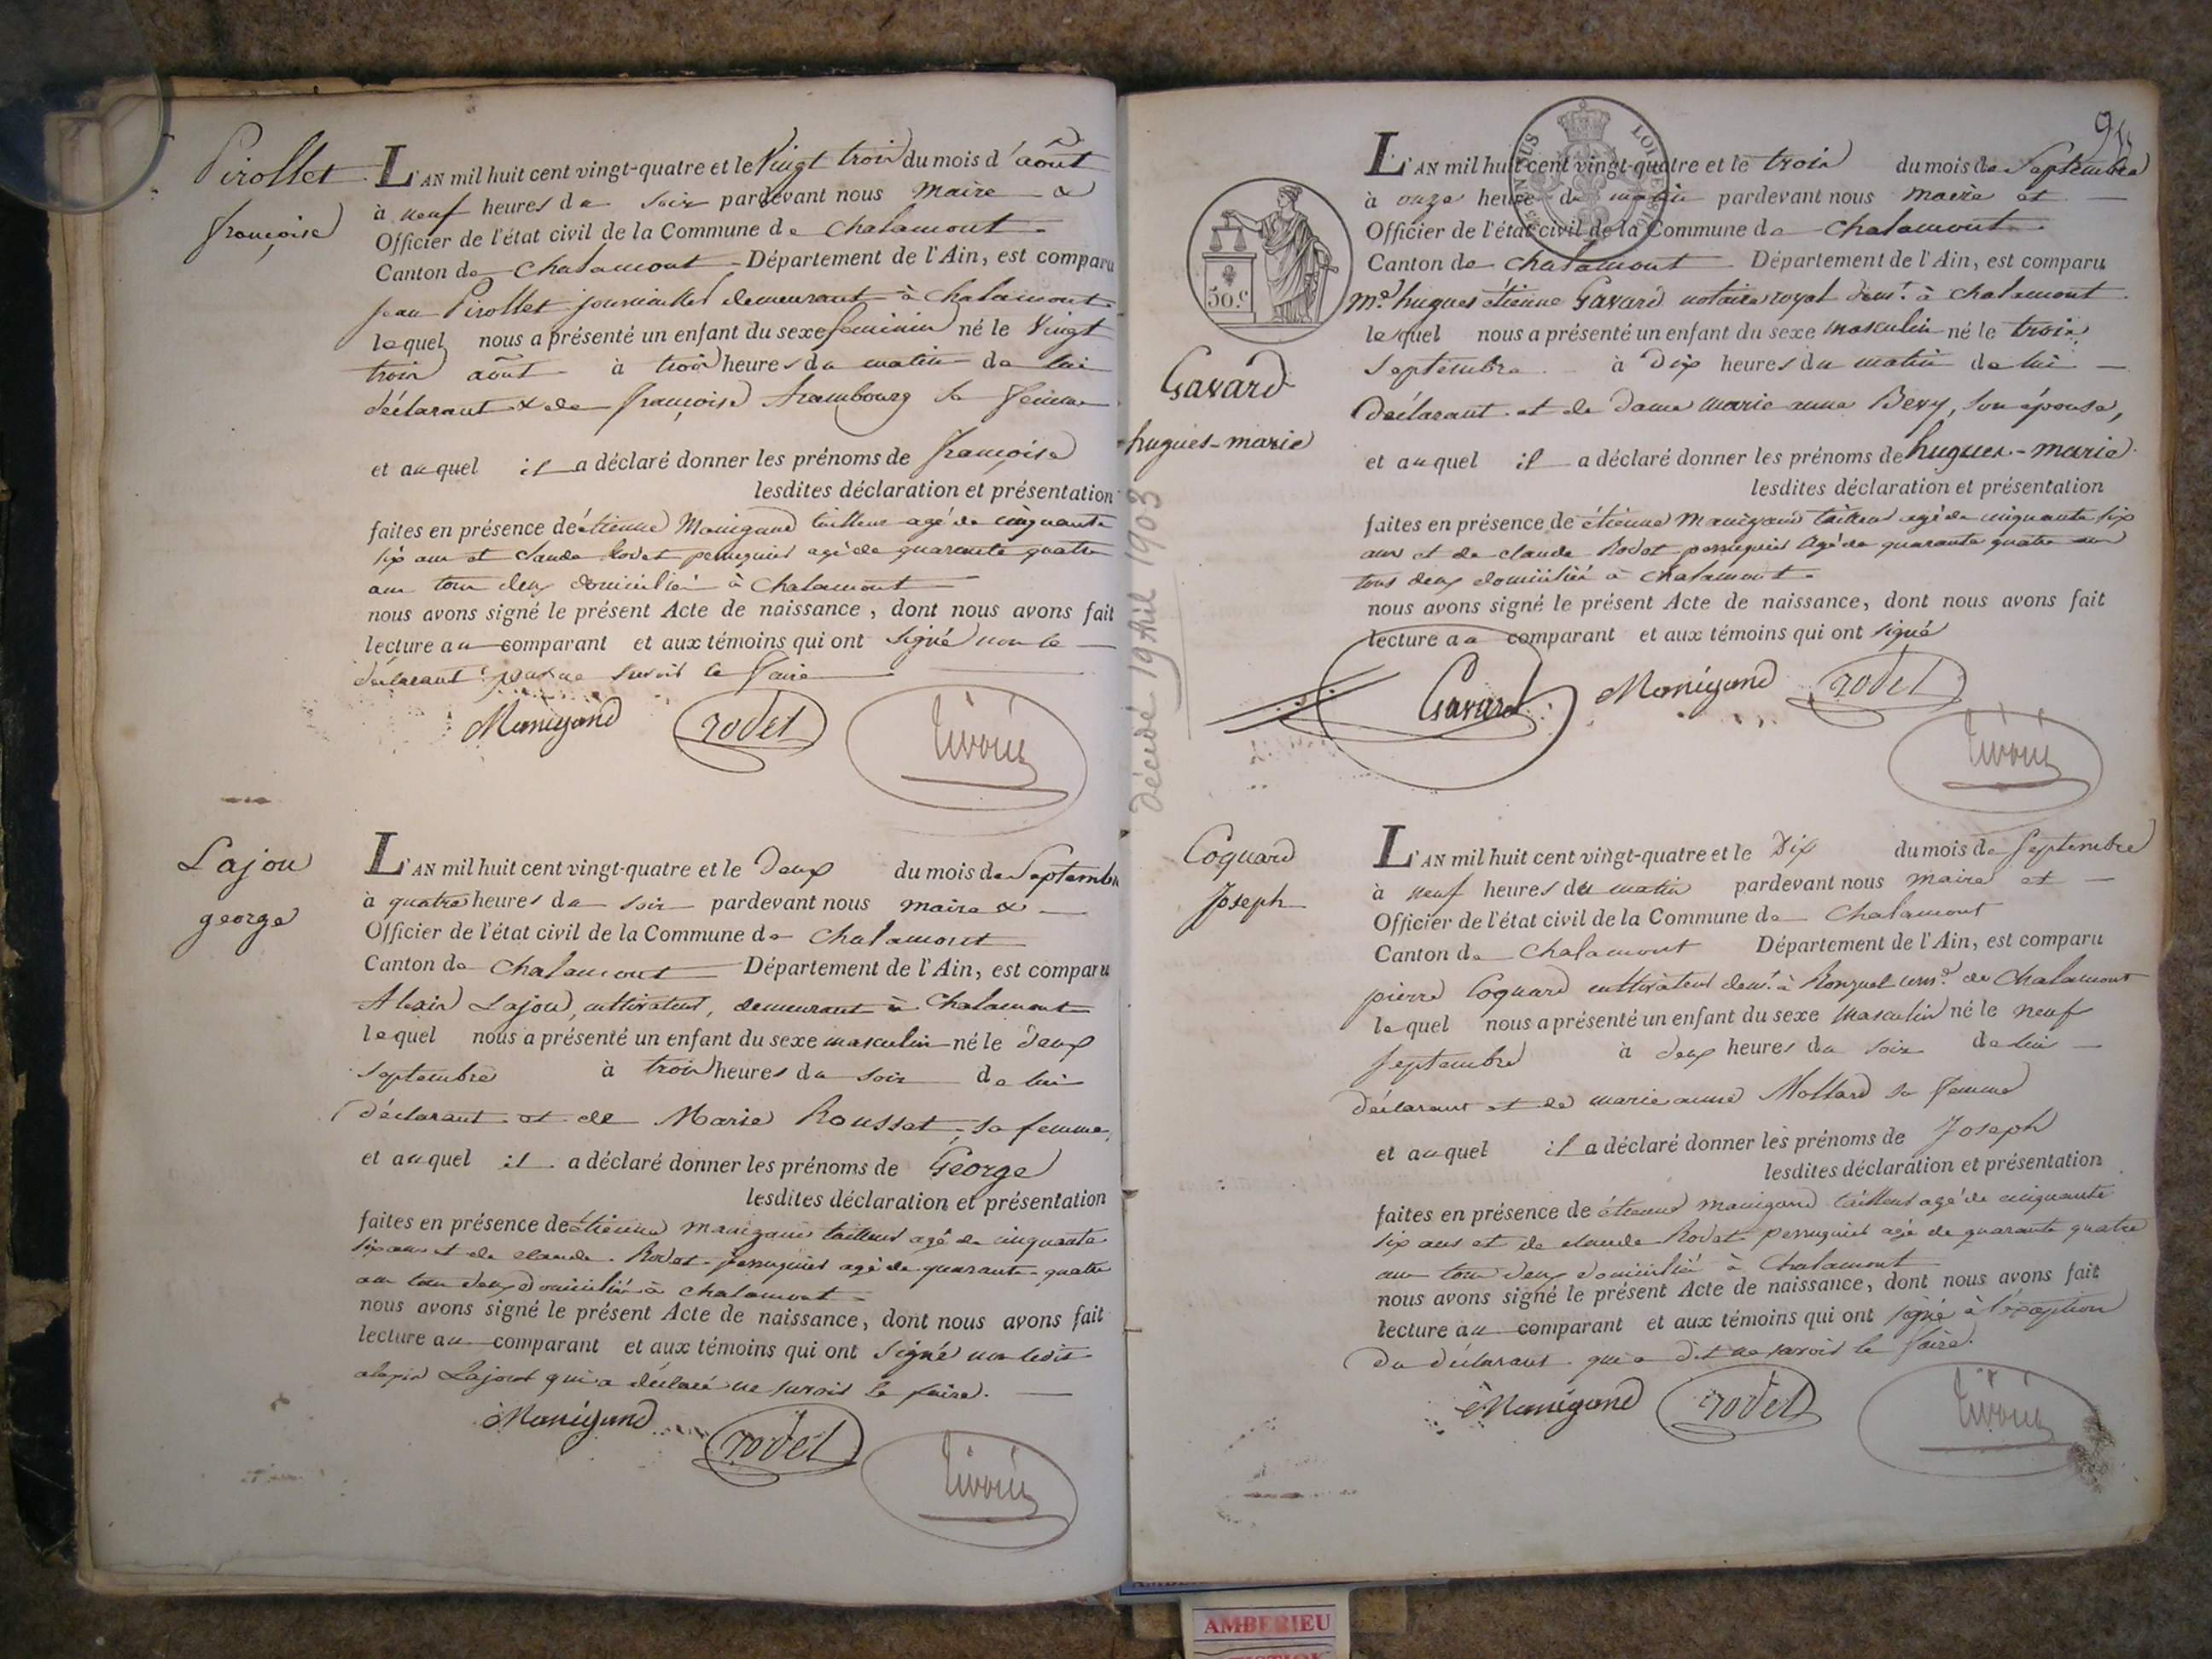 Pirollet
françoise
L'AN mil huit cent vingt-quatre et le Vingt trois du mois d'août
à neuf heures du soir pardevant nous maire &
Officier de l'état civil de la Commune de chalamont
Canton de Chalamont Département de l'Ain, est comparu
jean Pirollet journallier demeurant à Chalamont
lequel nous a présenté un enfant du sexe feminin né le Vingt
trois août à trois heures du matin de lui
déclarant & de françoise Arambourg sa femme
et auquel il a déclaré donner les prénoms de françoise
lesdites déclaration et présentation
faites en présence de étienne Manigand tailleur agé de cinquante
six ans et Claude Rodet perruquier agé de quarante quatre
ans tous deux domiciliés à Chalamont
nous avons signé le présent Acte de naissance, dont nous avons fait
lecture au comparant et aux témoins qui ont signé non le
déclarant pour ne savoir le faire
Manigand rodet
Lajou
george
L'AN mil huit cent vingt-quatre et le deux du mois de Septembre
à quatre heures du soir pardevant nous maire &
Officier de l'état civil de la Commune de Chalamont
Canton de Chalamont Département de l'Ain, est comparu
Alexis Lajou, cultivateur, demeurant à Chalamont
lequel nous a présenté un enfant du sexe masculin né le deux
Septembre à trois heures du soir de lui
déclarant et de Marie Rousset, sa femme,
et auquel il a déclaré donner les prénoms de George
lesdites déclaration et présentation
faites en présence de étienne manigand tailleur agé de cinquante
six ans et de claude Rodet perruquier agé de quarante-quatre
ans tous deux domiciliés à chalamont
nous avons signé le présent Acte de naissance, dont nous avons fait
lecture au comparant et aux témoins qui ont signé non ledit
alexis Lajou qui a déclaré ne savoir le faire.
Manigand rodet
L'AN mil huit cent vingt-quatre et le trois du mois de Septembre
à onze heures du matin pardevant nous maire et
Officier de l'état civil de la Commune de Chalamont
Canton de chalamont Département de l'Ain, est comparu
50.c
Me. hugues étienne Gavard notaire royal demt. à chalamont
lequel nous a présenté un enfant du sexe masculin né le trois
Septembre à Dix heures du matin de lui
Gavard
hugues-marie
Décédé 19 Avil 1903
déclarant et de dame marie anne Bevy, son épouse,
et auquel il a déclaré donner les prénoms de hugues-marie
lesdites déclaration et présentation
faites en présence de étienne manigand tailleur agé de cinquante six
ans et de claude Rodet perruquier agé de quarante quatre ans
tous deux domiciliés à chalamont
nous avons signé le présent Acte de naissance, dont nous avons fait
lecture au comparant et aux témoins qui ont signé
Gavard Manigand rodet
Coquard
Joseph
L'AN mil huit cent vingt-quatre et le Dix du mois de Septembre
à neuf heures du matin pardevant nous maire et
Officier de l'état civil de la Commune de Chalamont
Canton de chalamont Département de l'Ain, est comparu
pierre Coquard cultivateur demt. à Ronzuel de Chalamont
lequel nous a présenté un enfant du sexe masculin né le neuf
Septembre à deux heures du soir de lui
déclarant et de marie anne Mollard sa femme
et auquel il a déclaré donner les prénoms de Joseph
lesdites déclaration et présentation
faites en présence de étienne manigand tailleur agé de cinquante
six ans et de claude Rodet perruquier agé de quarante quatre
ans tous deux domiciliés à Chalamont
nous avons signé le présent Acte de naissance, dont nous avons fait
lecture au comparant et aux témoins qui ont signé à l'exception
du déclarant qui a dit ne savoir le faire.
Manigand rodet
AMBERIEU